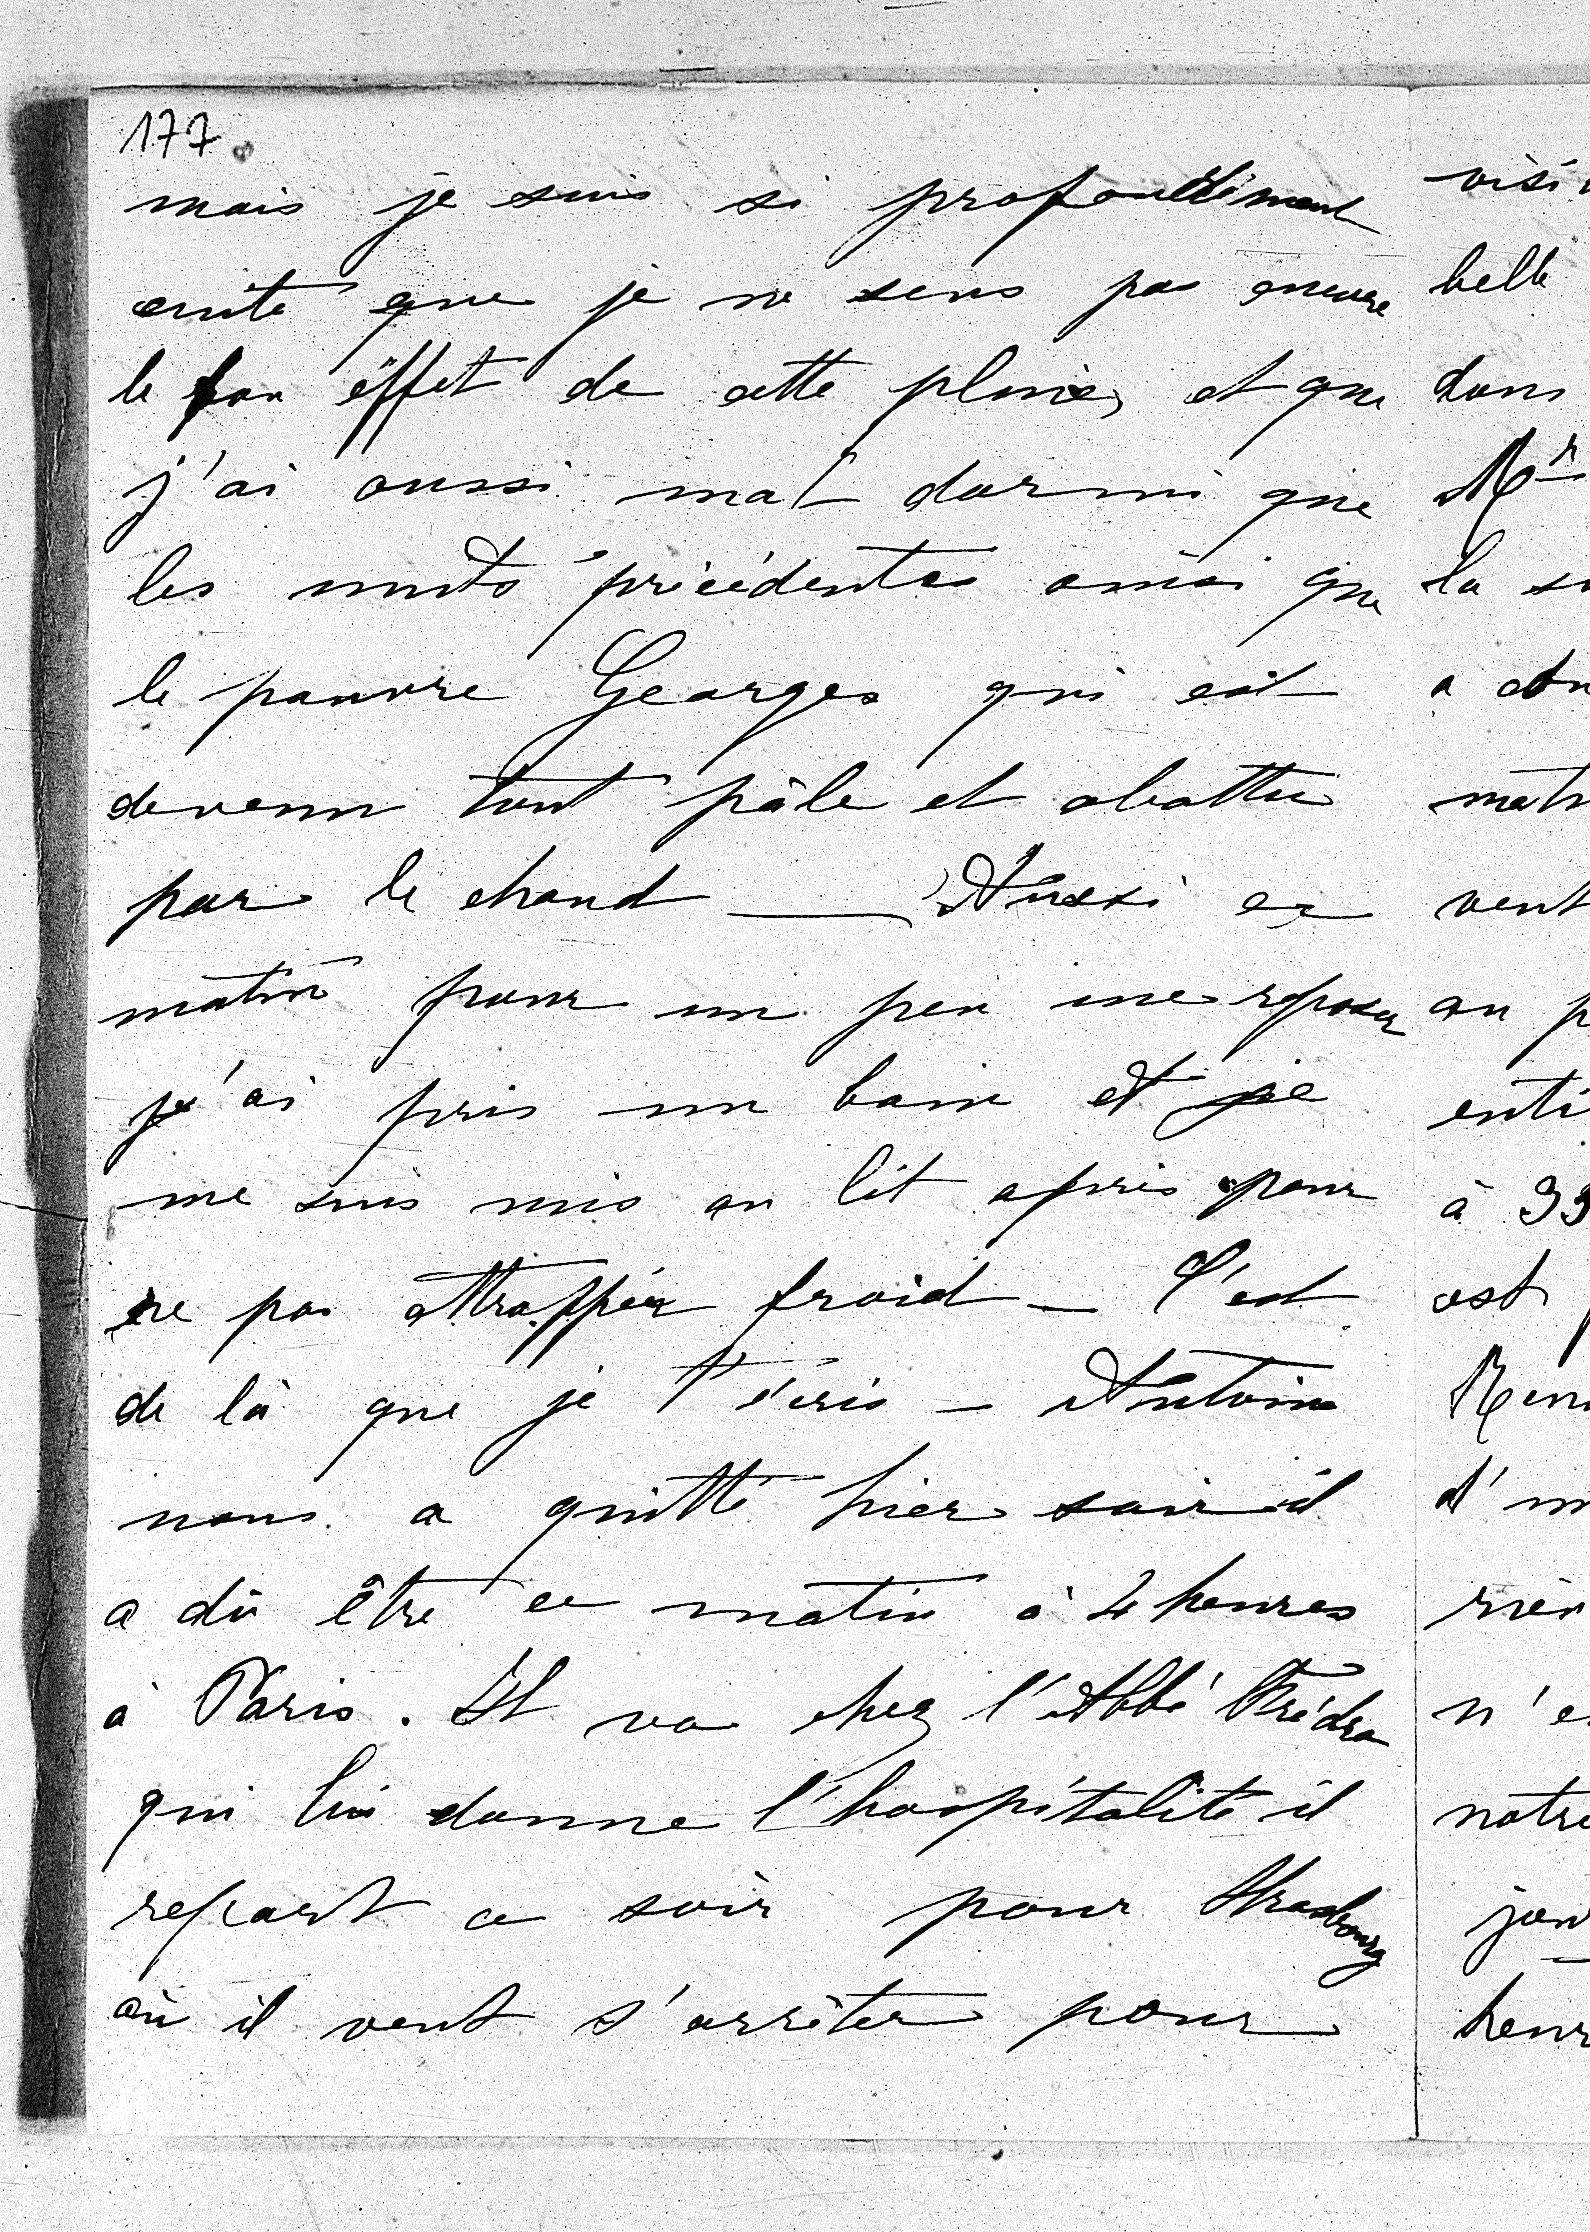 177
mais je suis si profondément
cuite que je ne sens pas encore
le bon effet de cette pluie, et que
j'ai aussi mal dormi que
les nuits précédentes ainsi que
le pauvre Georges qui est
devenu tout pâle et abattu
par le chaud — Aussi ce
matin pour un peu me reposer
j'ai pris un bain et je
me suis mis au lit après pour
ne pas attrapper froid — C'est
de là que je t'écris — Antoine
nous a quitté hier soir il
a dû être ce matin à 4 heures
à Paris. Il va chez l'Abbé
qui lui donne l'hospitalité il
repart ce soir pour Strasbourg
où il veut s'arrêter pour
visi
belle
dans
Mr
la su
a
mat
vent
au p
enti
à 33
est p
Ren
d'un
rien
n'e
notre
jou
heur